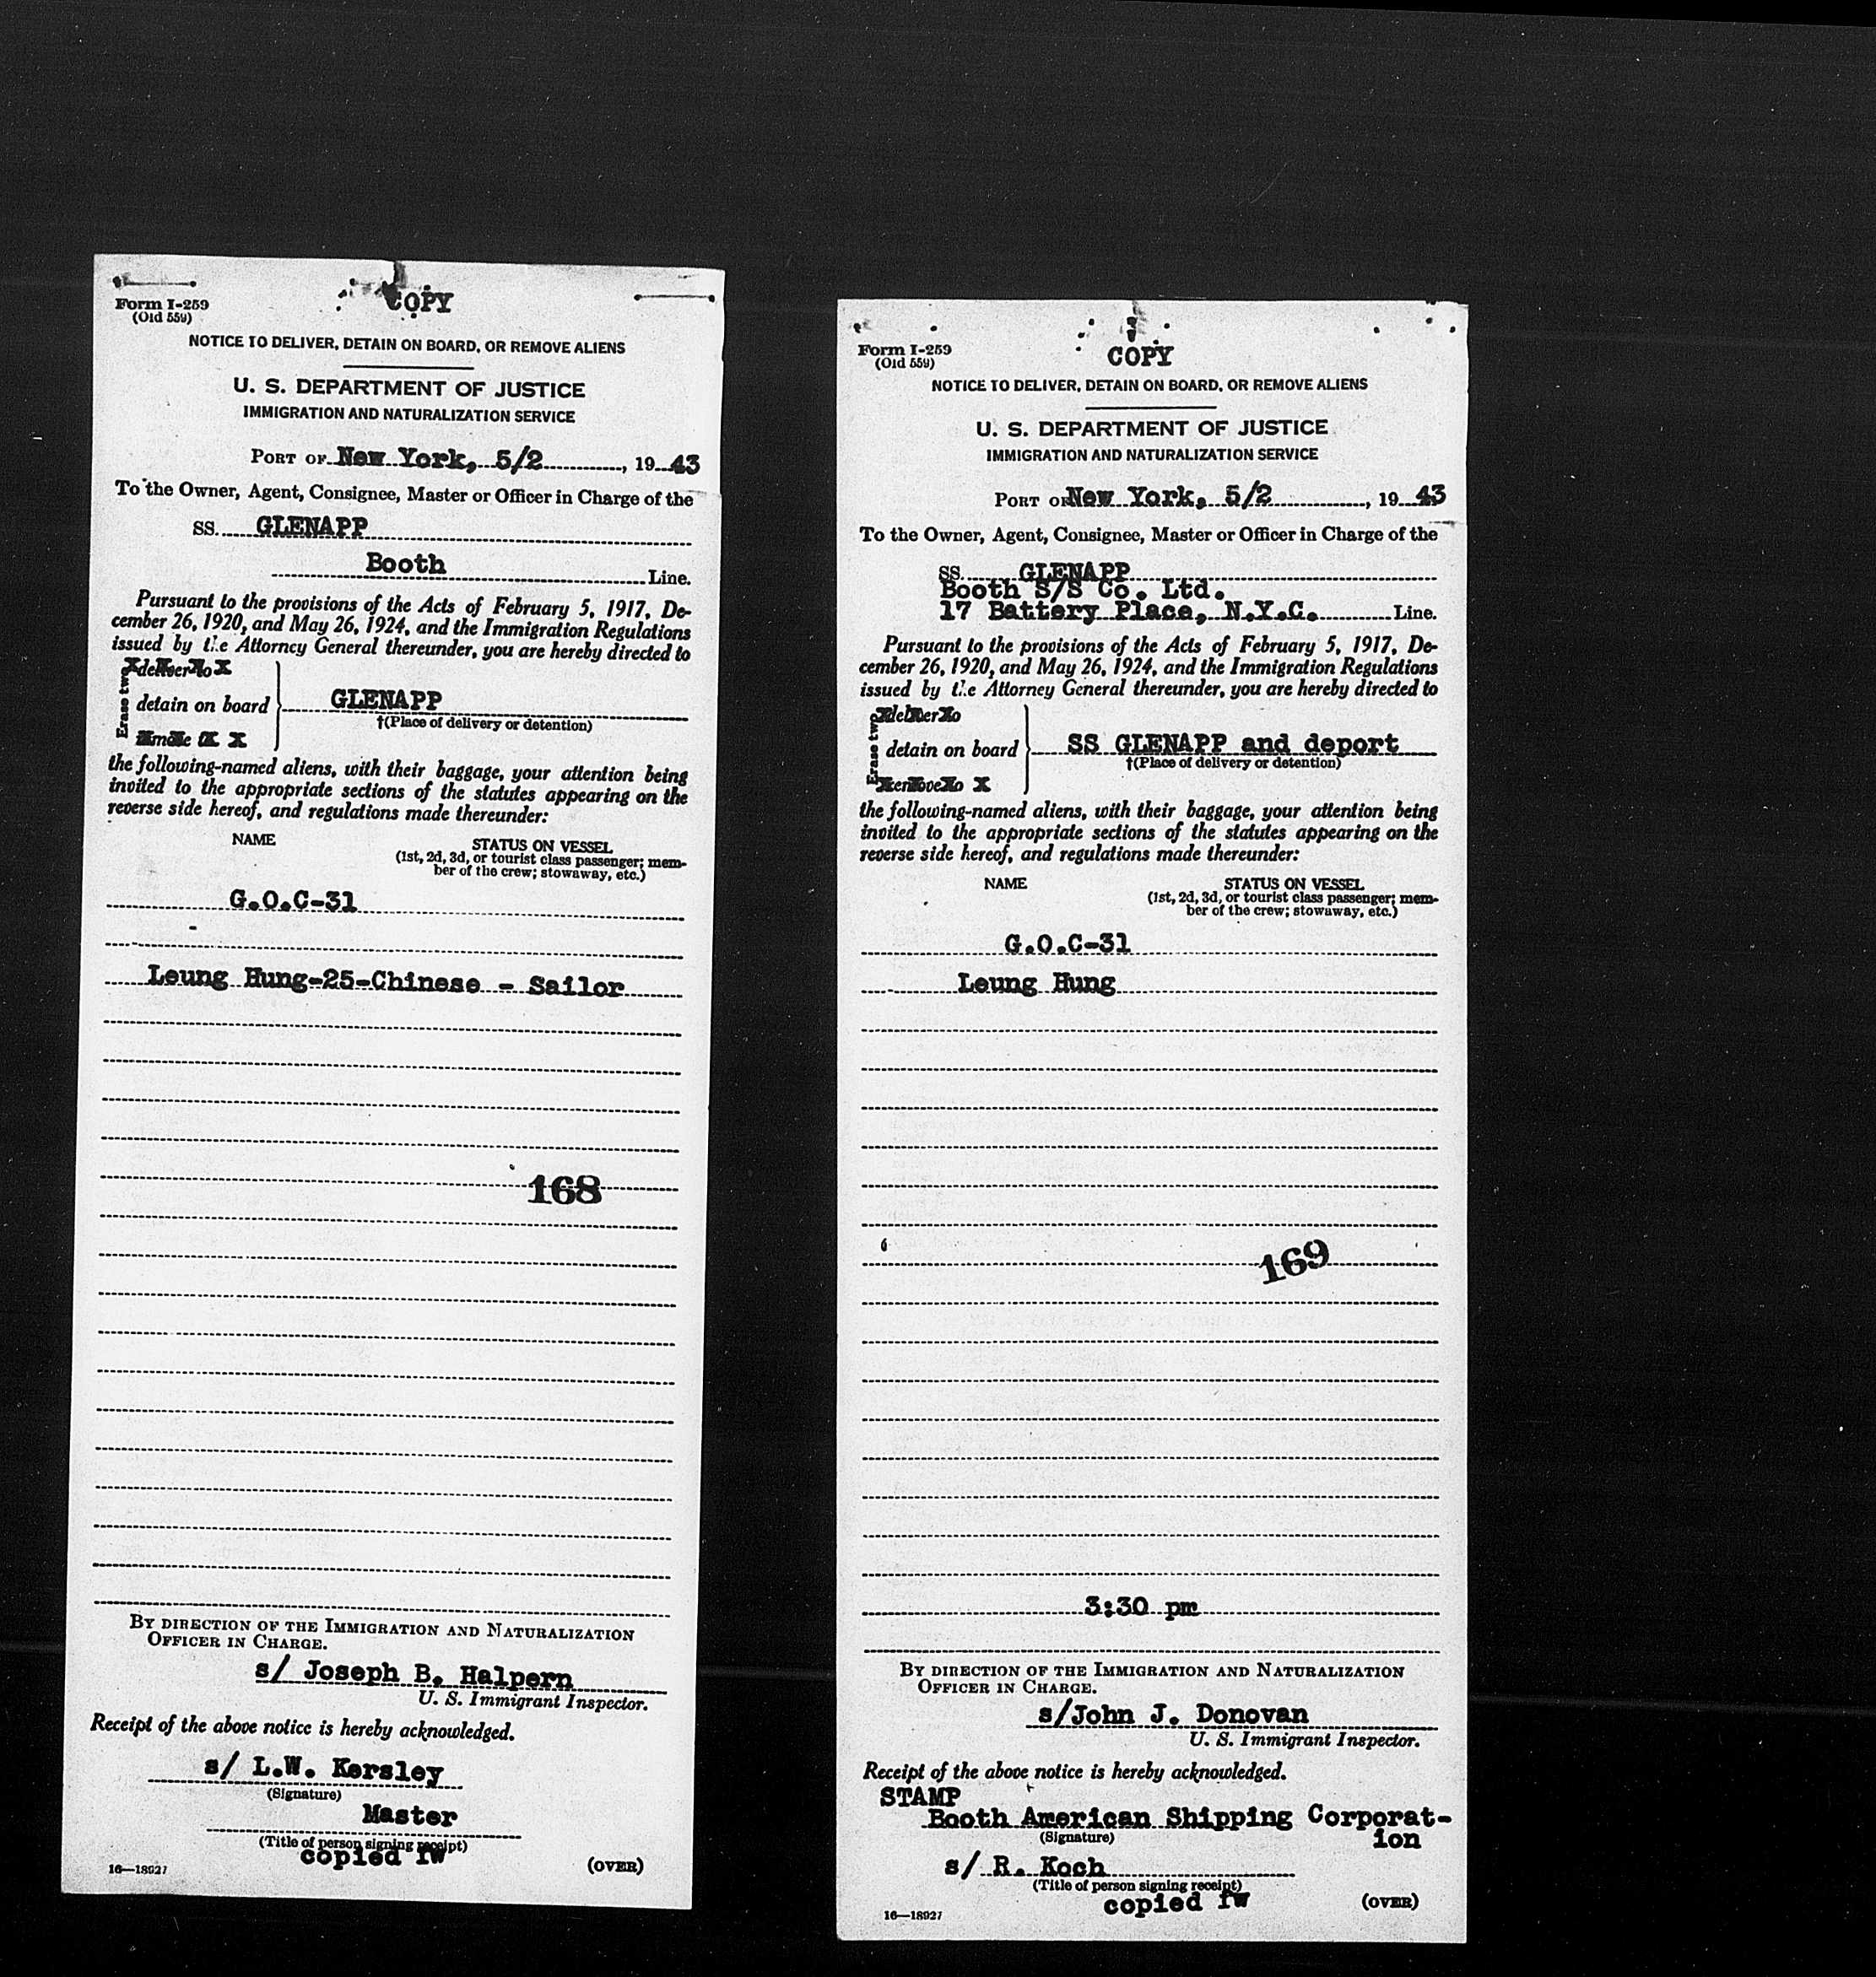 Form I-259
(Old 559)
COPY
NOTICE TO DELIVER, DETAIN ON BOARD, OR REMOVE ALIENS
U. S. DEPARTMENT OF JUSTICE
IMMIGRATION AND NATURALIZATION SERVICE
PORT OF New York, 5/2, 19 43
To the Owner, Agent, Consignee, Master or Officer in Charge of the
SS. GLENAPP
Booth Line.
Pursuant to the provisions of the Acts of February 5, 1917, De-
cember 26, 1920, and May 26, 1924, and the Immigration Regulations
issued by the Attorney General thereunder, you are hereby directed to
Erase two
deliver to
detain on board GLENAPP
†(Place of delivery or detention)
the following-named aliens, with their baggage, your attention being
invited to the appropriate sections of the statutes appearing on the
reverse side hereof, and regulations made thereunder:
NAME STATUS ON VESSEL
(1st, 2d, 3d, or tourist class passenger; mem-
ber of the crew; stowaway, etc.)
G.O.C-31
Leung Hung-25-Chinese - Sailor
168
BY DIRECTION OF THE IMMIGRATION AND NATURALIZATION
OFFICER IN CHARGE.
s/ Joseph B. Halpern
U. S. Immigrant Inspector.
Receipt of the above notice is hereby acknowledged.
s/ L.W. Kersley
(Signature)
Master
(Title of person signing receipt)
copied fw
16—18927 (OVER)
Form I-259
(Old 559)
COPY
NOTICE TO DELIVER, DETAIN ON BOARD, OR REMOVE ALIENS
U. S. DEPARTMENT OF JUSTICE
IMMIGRATION AND NATURALIZATION SERVICE
PORT OF New York, 5/2, 19 43
To the Owner, Agent, Consignee, Master or Officer in Charge of the
SS. GLENAPP
Booth S/S Co. Ltd.
17 Battery Place, N.Y.C. Line.
Pursuant to the provisions of the Acts of February 5, 1917, De-
cember 26, 1920, and May 26, 1924, and the Immigration Regulations
issued by the Attorney General thereunder, you are hereby directed to
Erase two
deliver to
detain on board SS GLENAPP and deport
†(Place of delivery or detention)
remove to
the following-named aliens, with their baggage, your attention being
invited to the appropriate sections of the statutes appearing on the
reverse side hereof, and regulations made thereunder:
NAME STATUS ON VESSEL
(1st, 2d, 3d, or tourist class passenger; mem-
ber of the crew; stowaway, etc.)
G.O.C-31
Leung Hung
169
3:30 pm
BY DIRECTION OF THE IMMIGRATION AND NATURALIZATION
OFFICER IN CHARGE.
s/John J. Donovan
U. S. Immigrant Inspector.
Receipt of the above notice is hereby acknowledged.
STAMP
Booth American Shipping Corporat-
ion
(Signature)
s/ R. Koch
(Title of person signing receipt)
copied fw
16—18927 (OVER)